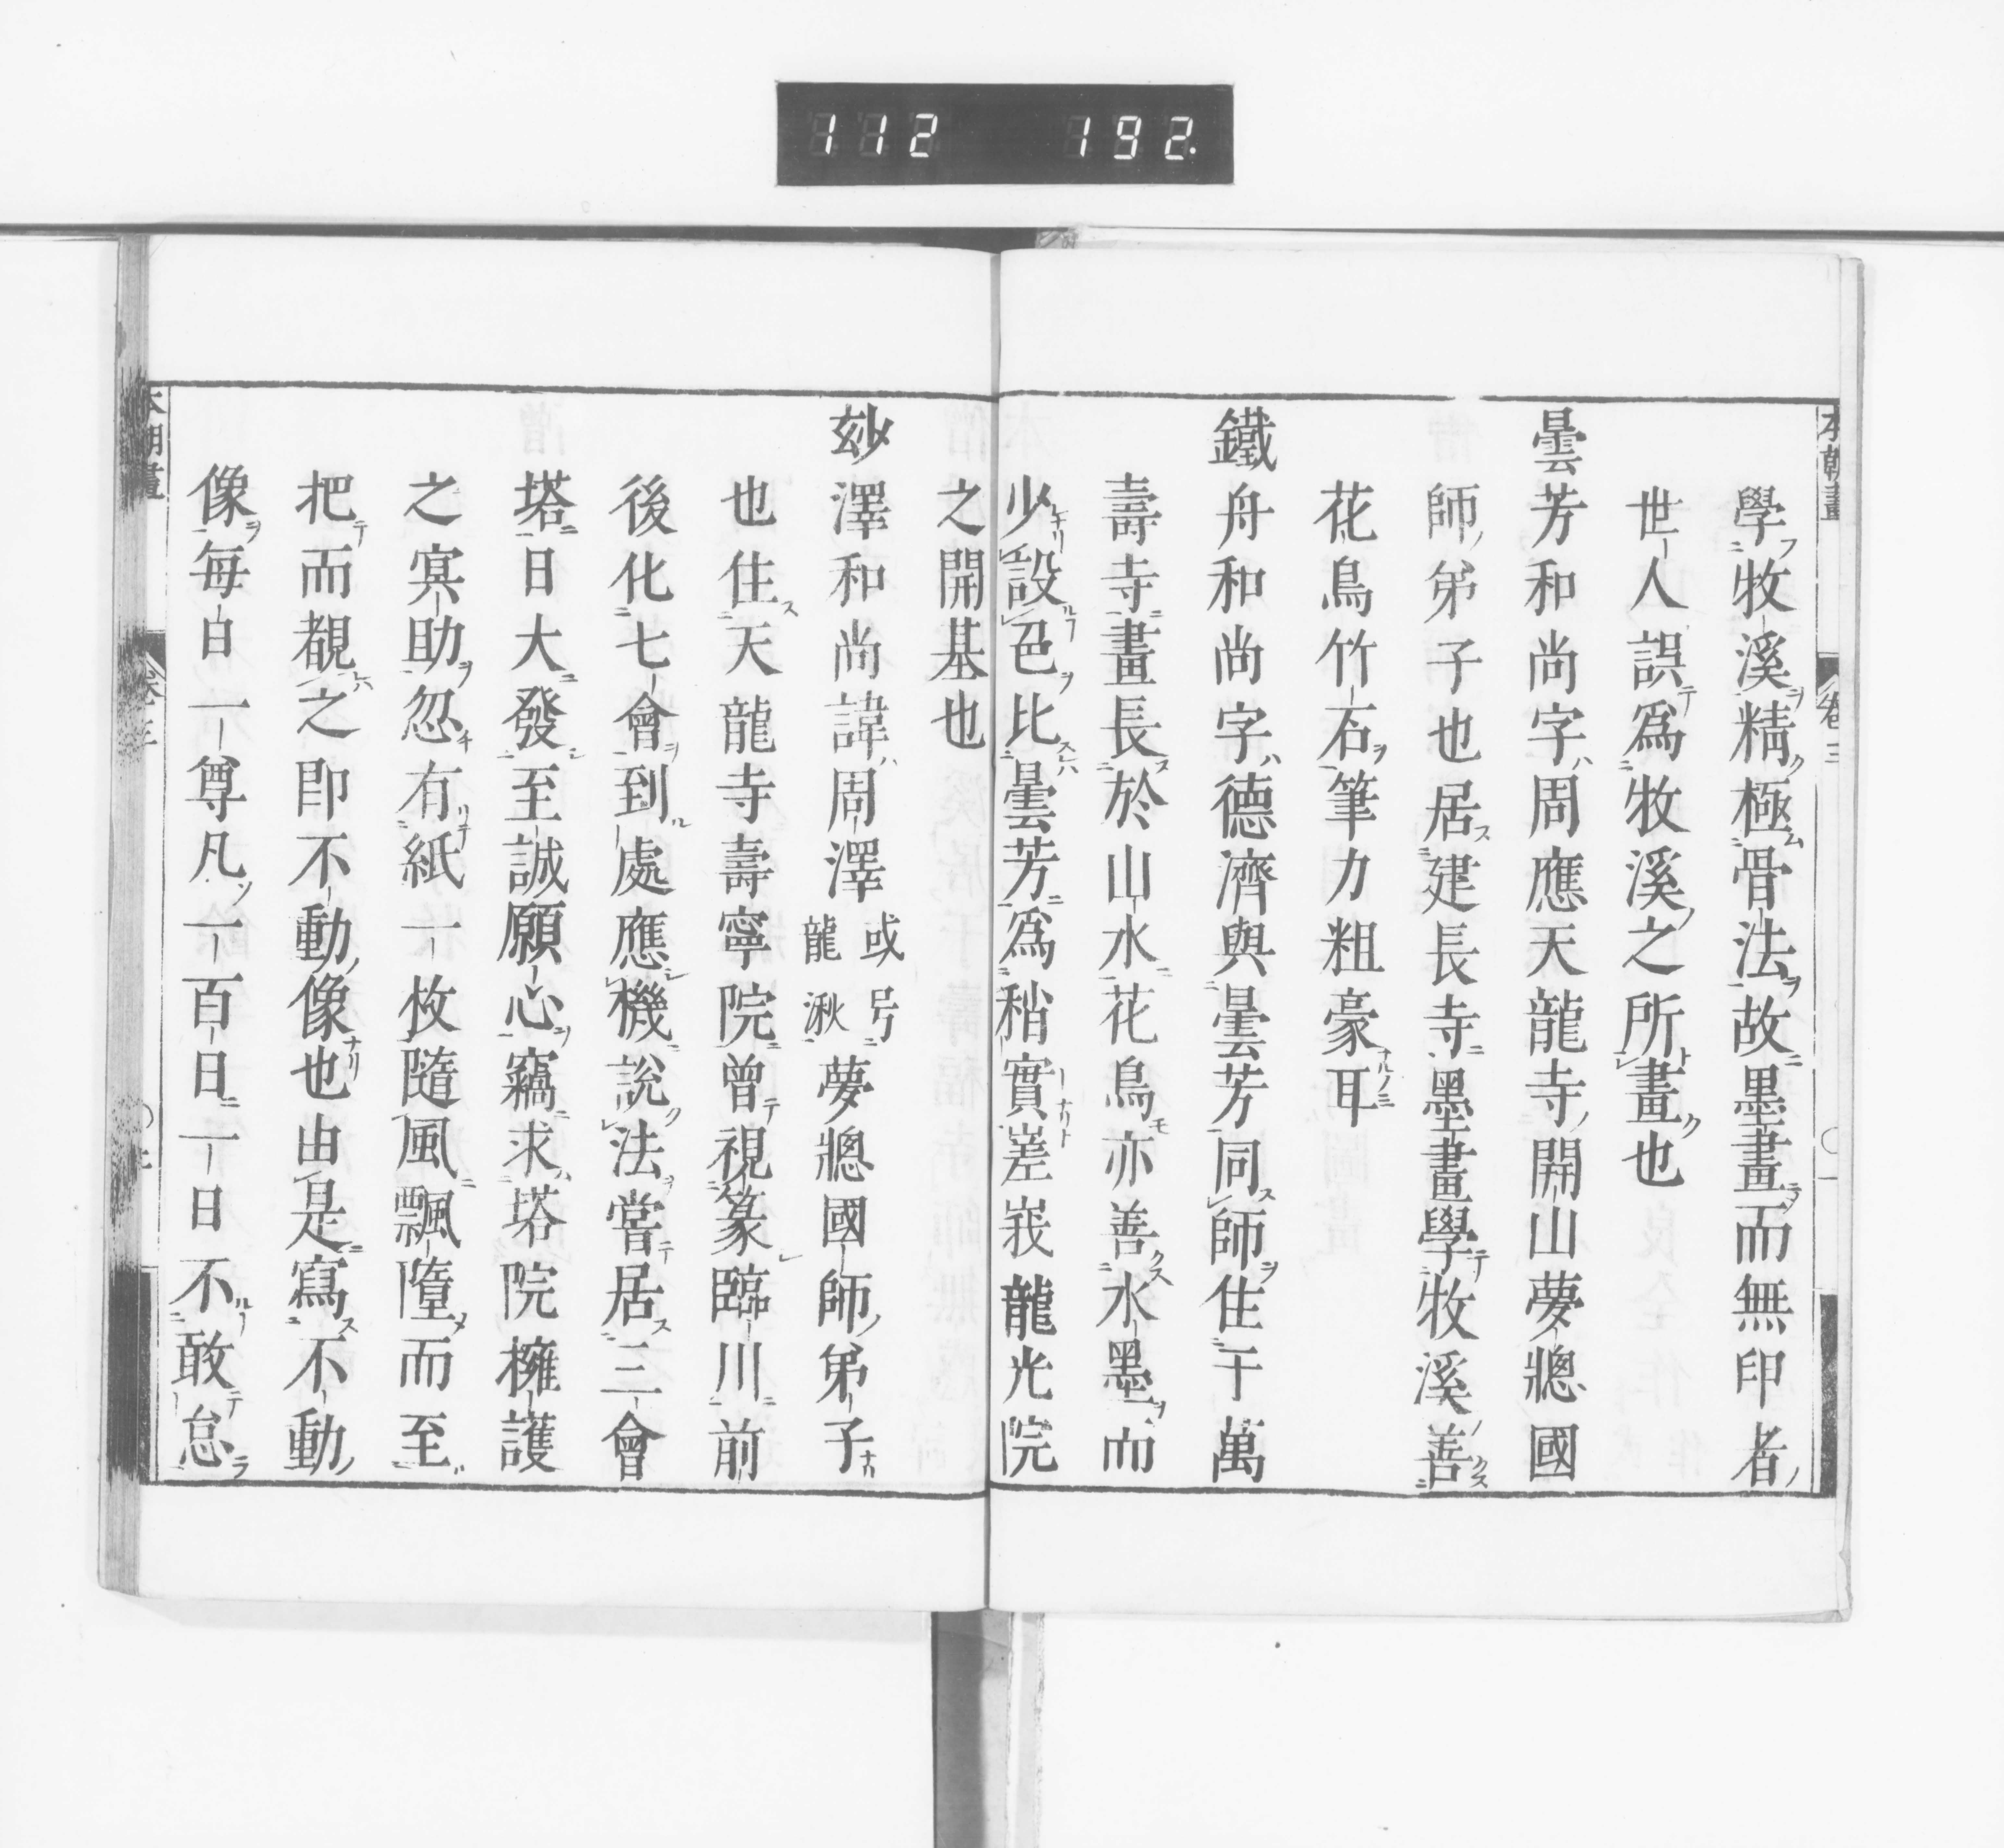 112 192.
本朝畫 卷三 一
學牧溪精極骨法故墨畫而無印者
世人誤爲牧溪之所畫也
曇芳和尚字周應天龍寺開山夢牕國
師弟子也居建長寺墨畫學牧溪善
花鳥竹石筆力粗豪耳
鐵舟和尚字德濟與曇芳同師住干萬
壽寺畫長於山水花鳥亦善水墨而
少設色比曇芳爲稍實嵳峩龍光院
之開基也
玅澤和尚諱周澤或号龍湫夢牕國師弟子
也住天龍寺壽寧院曾視篆臨川前
後化七會到處應機說法嘗居三會
塔日大發至誠願心竊求塔院擁護
之冥助忽有紙一枚隨風飄墮而至
把而覩之即不動像也由是寫不動
像每日一尊凡一百日一日不敢怠
本朝畫 卷三